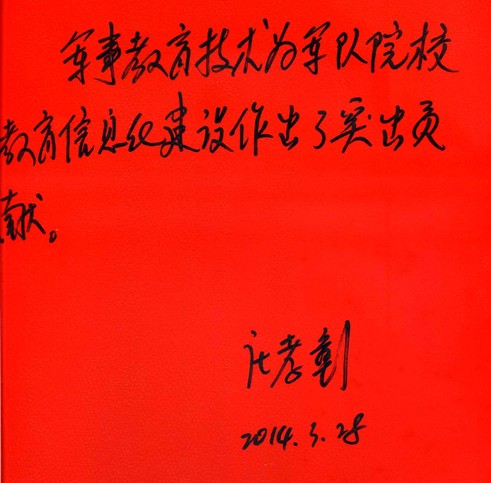 军事教育技术为军队院校
教育信息化建设作出了突出贡
献。
2014.3.28